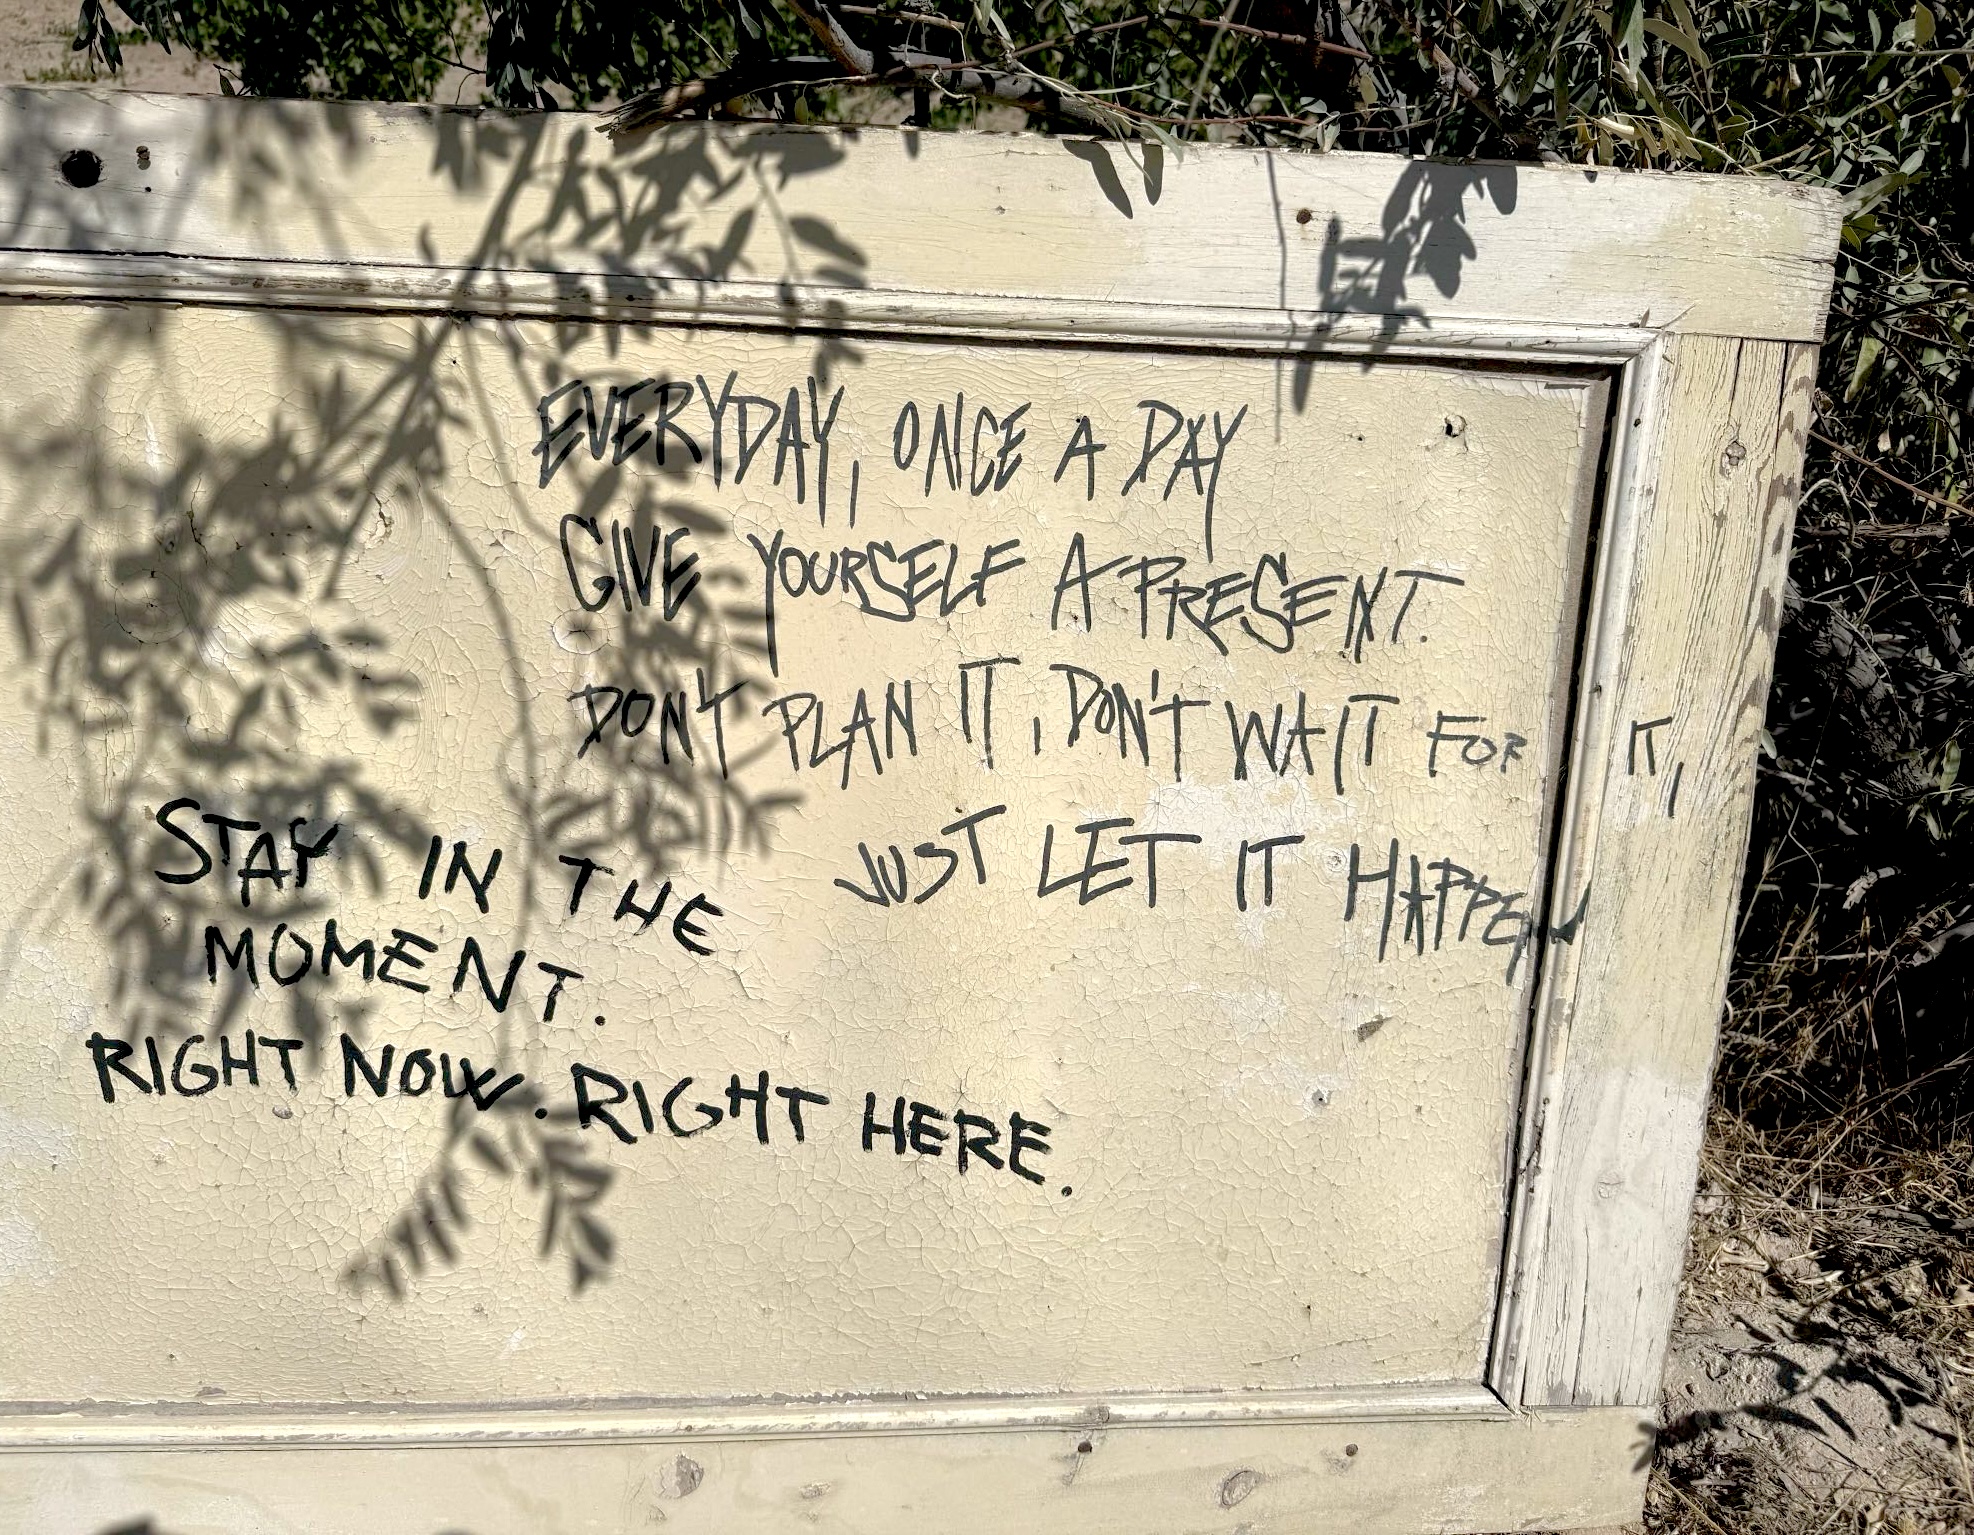 EVERYDAY, ONCE A DAY
GIVE YOURSELF A PRESENT.
DON'T PLAN IT, DON'T WAIT FOR IT,
JUST LET IT HAPPEN
STAY IN THE
MOMENT.
RIGHT NOW. RIGHT HERE.